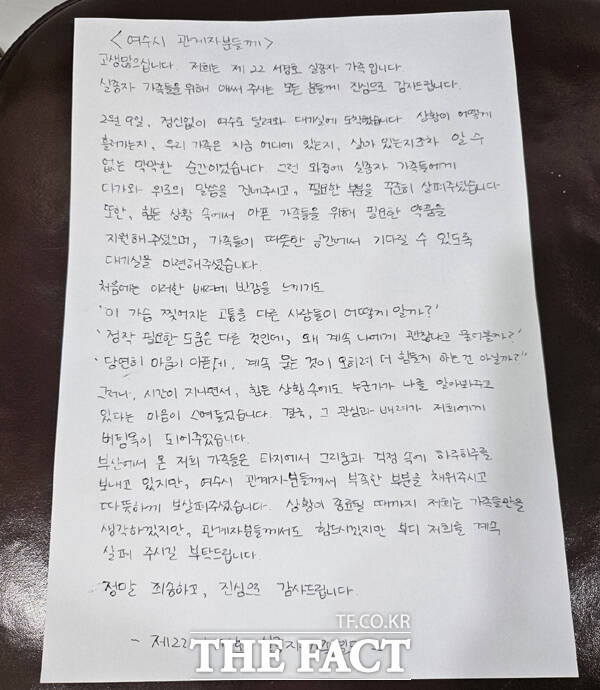 < 여수시 관계자분들께 >
고생많으십니다. 저희는 제 22 서경호 실종자 가족입니다.
실종자 가족들을 위해 애써 주시는 모든 분들께 진심으로 감사드립니다.
2월 9일, 정신없이 여수로 달려와 대기실에 도착했습니다. 상황이 어떻게
흘러가는지, 우리 가족은 지금 어디에 있는지, 살아 있는지조차 알 수
없는 막막한 순간이었습니다. 그런 와중에 실종자 가족들에게
다가와 위로의 말씀을 건네주시고, 필요한 부분을 꾸준히 살펴주셨습니다.
또한, 힘든 상황 속에서 아픈 가족들을 위해 필요한 약품을
지원해 주셨으며, 가족들이 따뜻한 공간에서 기다릴 수 있도록
대기실을 마련해주셨습니다.
처음에는 이러한 배려에 반감을 느끼기도
'이 가슴 찢어지는 고통을 다른 사람들이 어떻게 알까?'
'정작 필요한 도움은 다른 것인데, 왜 계속 나에게 괜찮냐고 물어볼까?'
'당연히 마음이 아픈데, 계속 묻는 것이 오히려 더 힘들게 하는 건 아닐까?'
그러나, 시간이 지나면서, 힘든 상황 속에도 누군가가 나를 알아봐주고
있다는 마음이 스며들었습니다. 결국, 그 관심과 배려가 저희에게
버팀목이 되어주었습니다.
부산에서 온 저희 가족들은 타지에서 그리움과 걱정 속에 하루하루를
보내고 있지만, 여수시 관계자분들께서 부족한 부분을 채워주시고
따뜻하게 보살펴주셨습니다. 상황이 종료될 때까지 저희는 가족들만을
생각하겠지만, 관계자분들께서도 힘드시겠지만 부디 저희를 계속
살펴 주시길 부탁드립니다.
정말 죄송하고, 진심으로 감사드립니다.
- 제22
TF.CO.KR
THE FACT